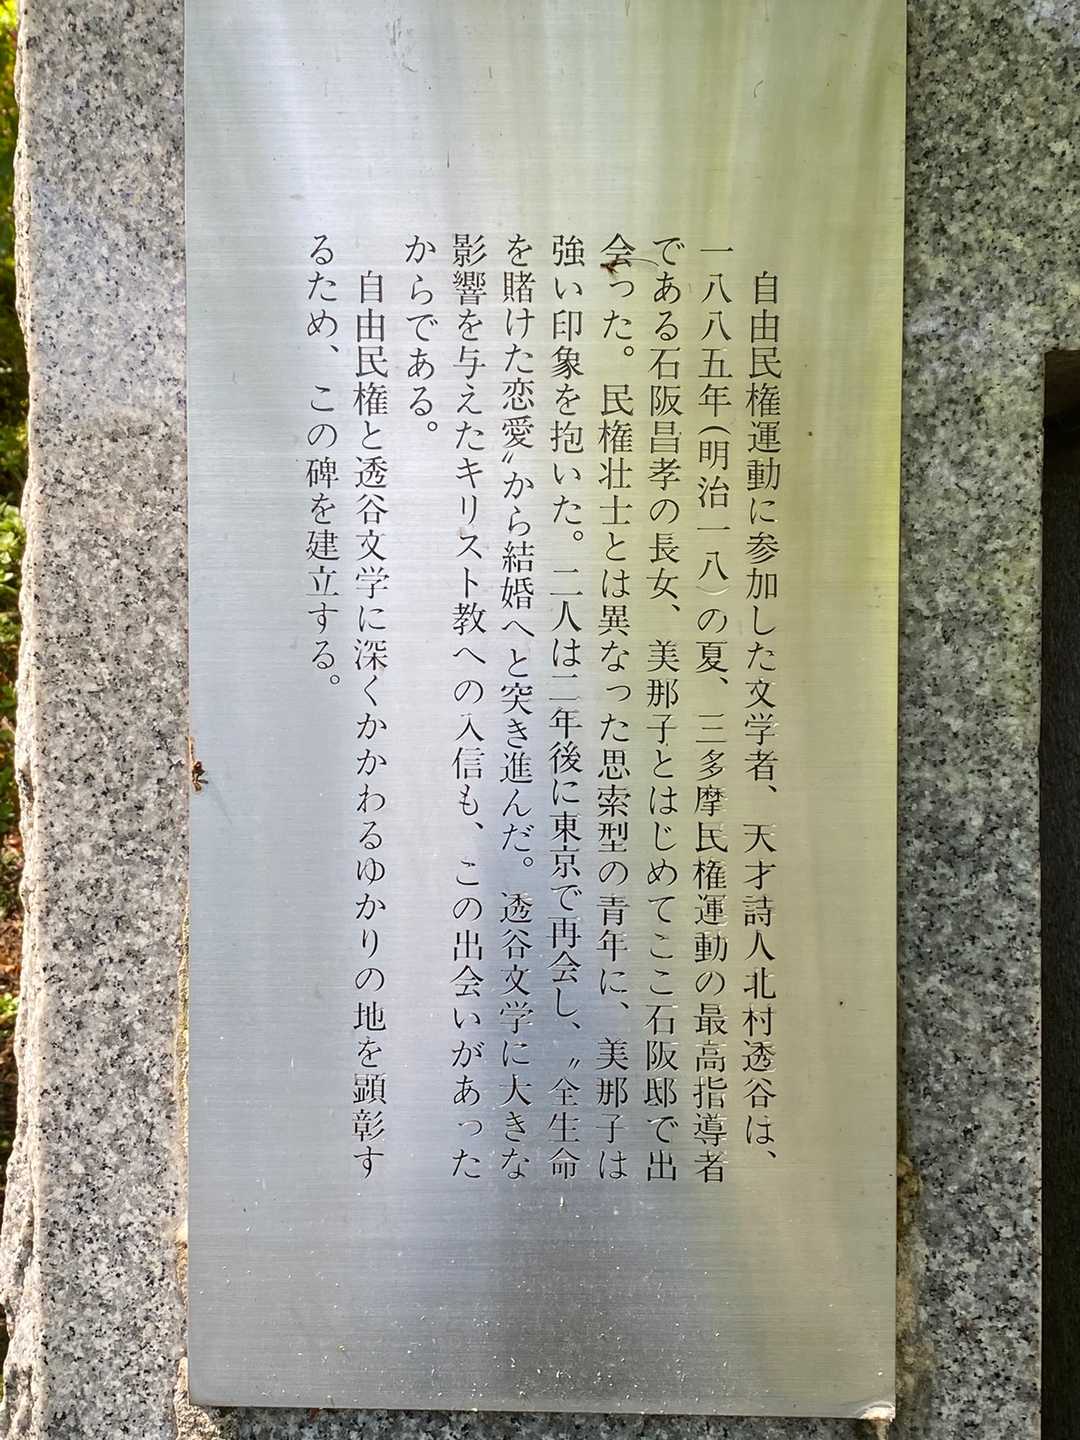 自由民権運動に参加した文学者、天才詩人北村透谷は、
一八八五年(明治一八)の夏、三多摩民権運動の最高指導者
である石阪昌孝の長女、美那子とはじめてここ石阪邸で出
会った。民権壮士とは異なった思索型の青年に、美那子は
強い印象を抱いた。二人は二年後に東京で再会し、〝全生命
を賭けた恋愛〟から結婚へと突き進んだ。透谷文学に大きな
影響を与えたキリスト教への入信も、この出会いがあった
からである。
自由民権と透谷文学に深くかかわるゆかりの地を顕彰す
るため、この碑を建立する。